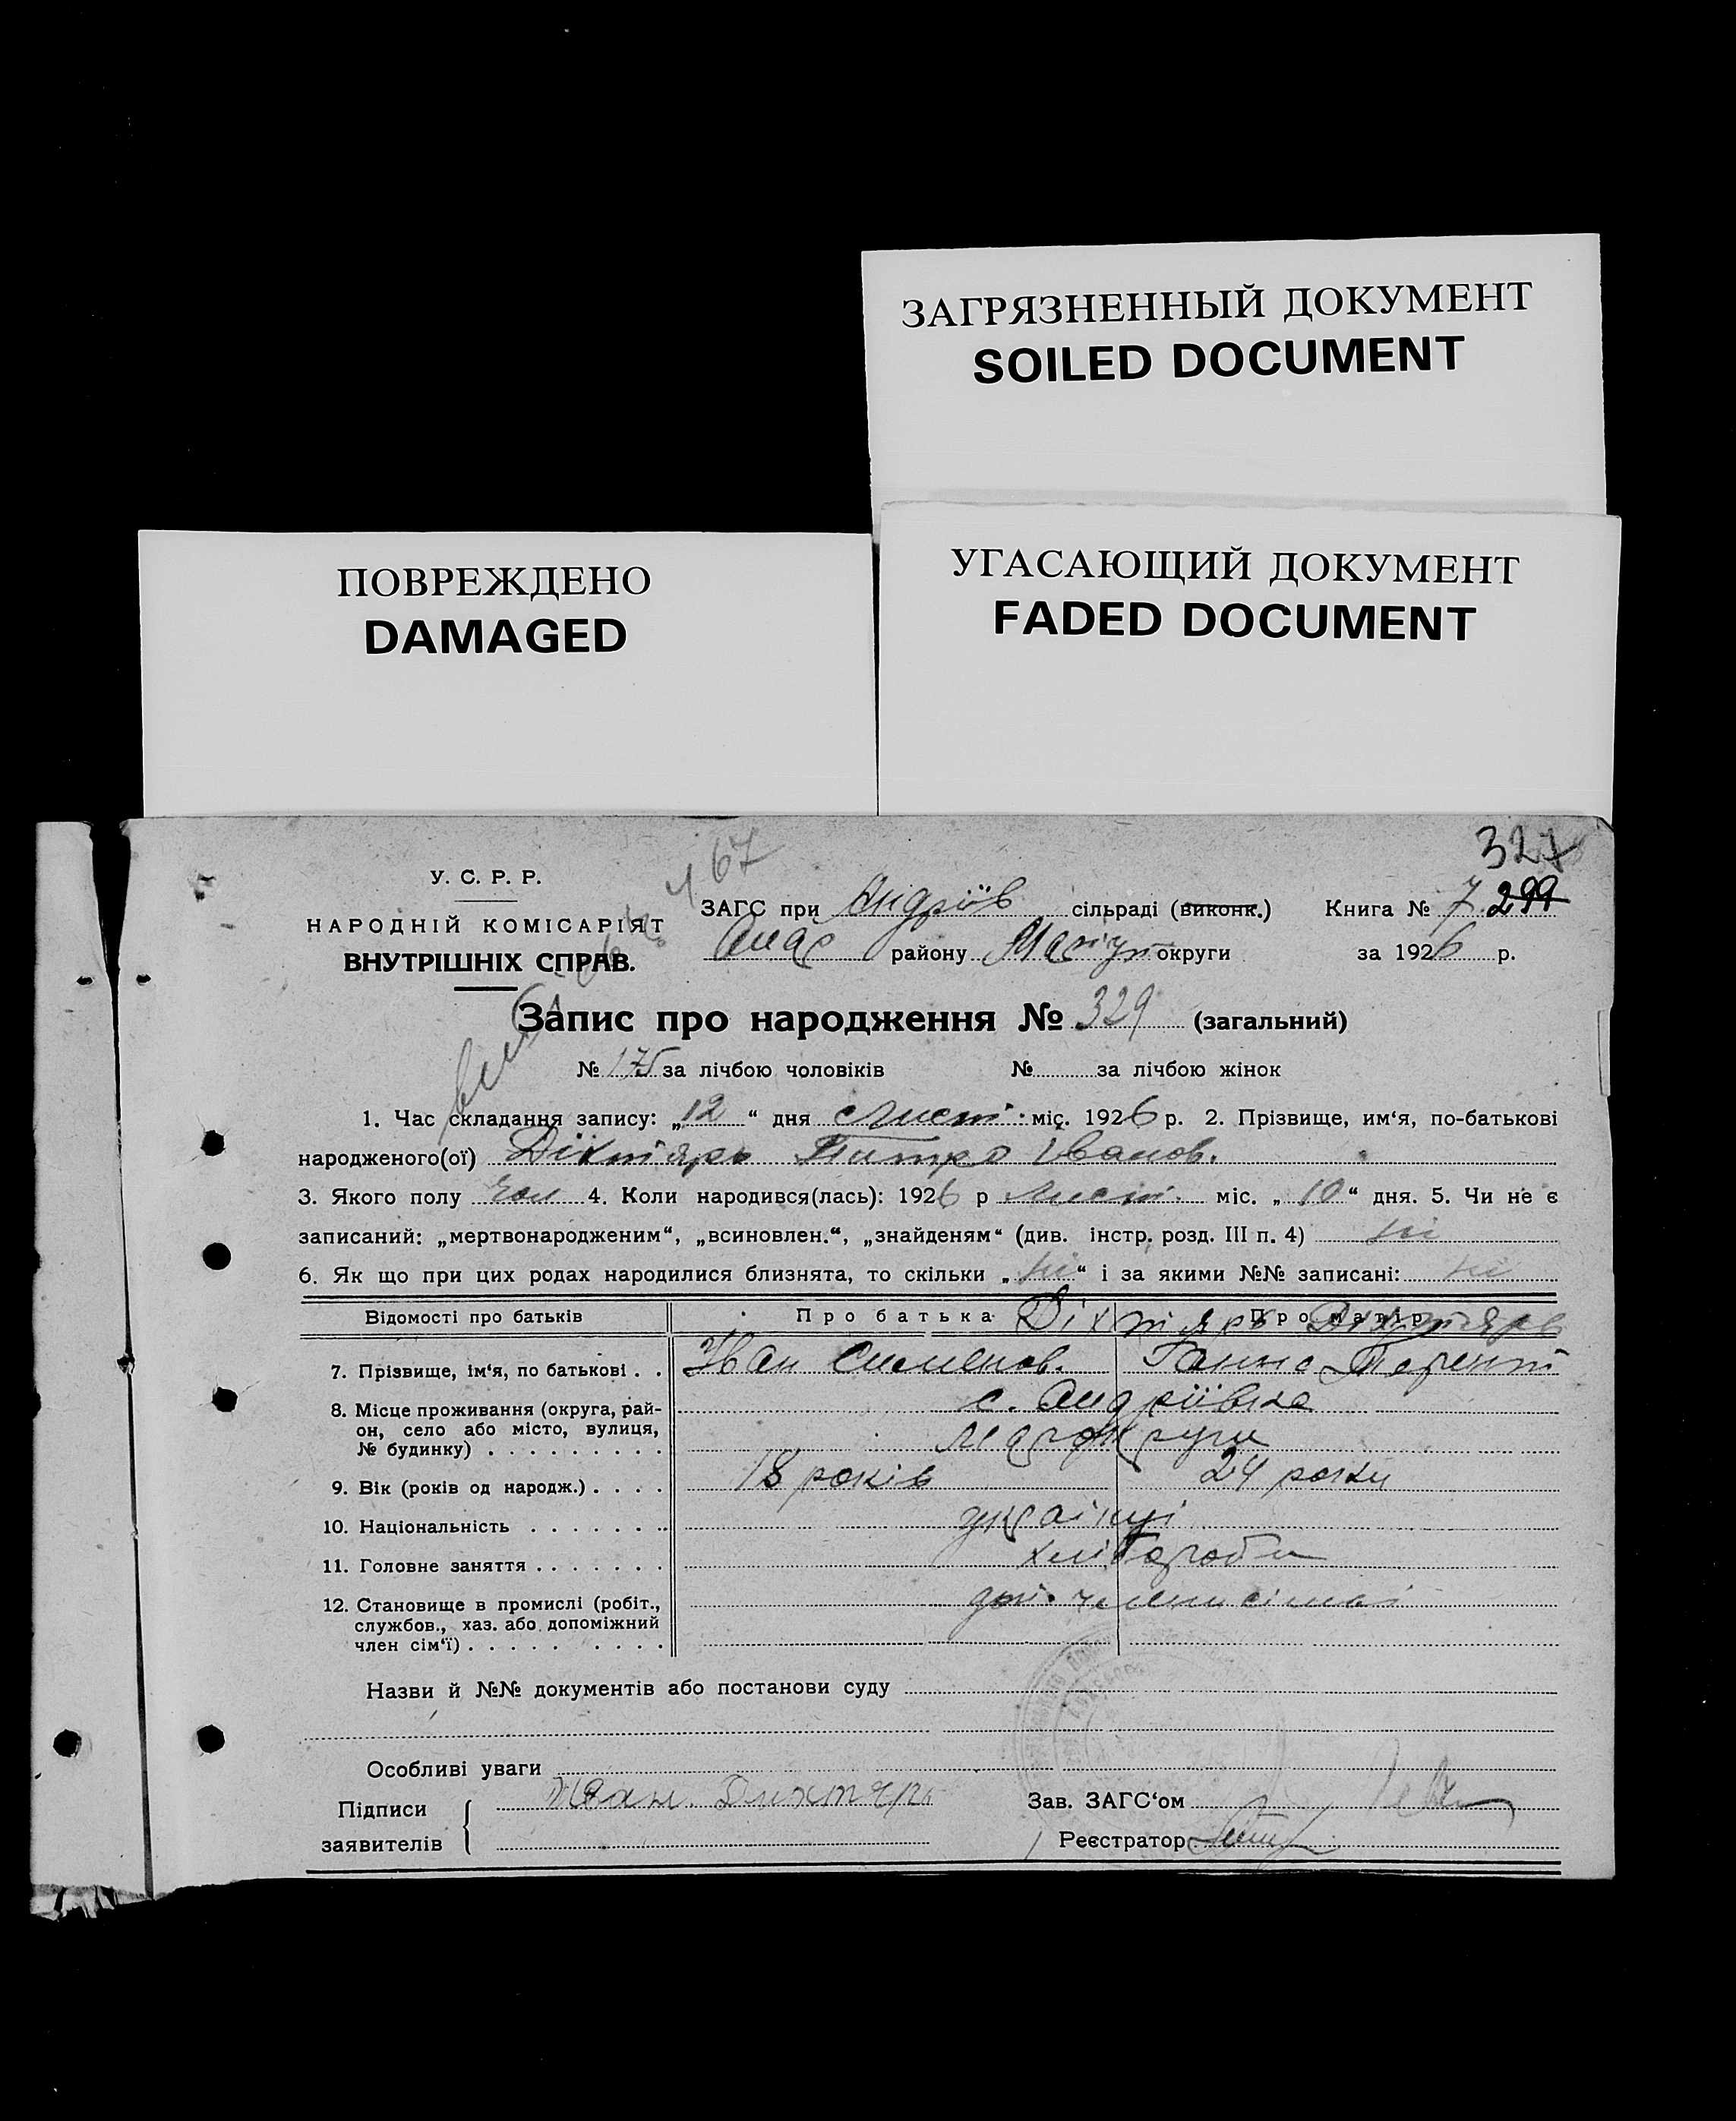 ЗАГРЯЗНЕННЫЙ ДОКУМЕНТ
SOILED DOCUMENT
ПОВРЕЖДЕНО
DAMAGED
УГАСАЮЩИЙ ДОКУМЕНТ
FADED DOCUMENT
327
У. С. Р. Р.
НАРОДНІЙ КОМІСАРІЯТ
ВНУТРІШНІХ СПРАВ.
67
ЗАГС при Андріїв сільраді (виконк.) Книга № 7 299
району Маріуп округи за 1926 р.
Запис про народження № 329 (загальний)
№ 175 за лічбою чоловіків № за лічбою жінок
1. Час складання запису: „12“ дня Лист. міс. 1926 р. 2. Прізвище, им‘я, по-батькові
народженого(ої) Діхтярь Питро Іванов.
3. Якого полу чол 4. Коли народився(лась): 1926 р Лист. міс. „10“ дня. 5. Чи не є
записаний: „мертвонародженим“, „всиновлен.“, „знайденям“ (див. інстр. розд. III п. 4) ні
6. Як що при цих родах народилися близнята, то скільки „ні“ і за якими №№ записані: ні
Відомості про батьків Про батька Про матір
Діхтярь Дихтярь
7. Прізвище, ім‘я, по батькові . . Іван Сименов. Ганна Терент
8. Місце проживання (округа, рай-
он, село або місто, вулиця,
№ будинку) . . . . . . . . .
с. Андріївка
округи
9. Вік (років од народж.) . . . . 18 років 24 роки
10. Національність . . . . . . . українці
11. Головне заняття . . . . . . . хлібороби
12. Становище в промислі (робіт.,
службов., хаз. або допоміжний
член сім‘ї) . . . . . . . . . .
члени сімї
Назви й №№ документів або постанови суду
Особливі уваги
Підписи
заявителів
Иван. Дихтярь
Зав. ЗАГС‘ом
Реєстратор